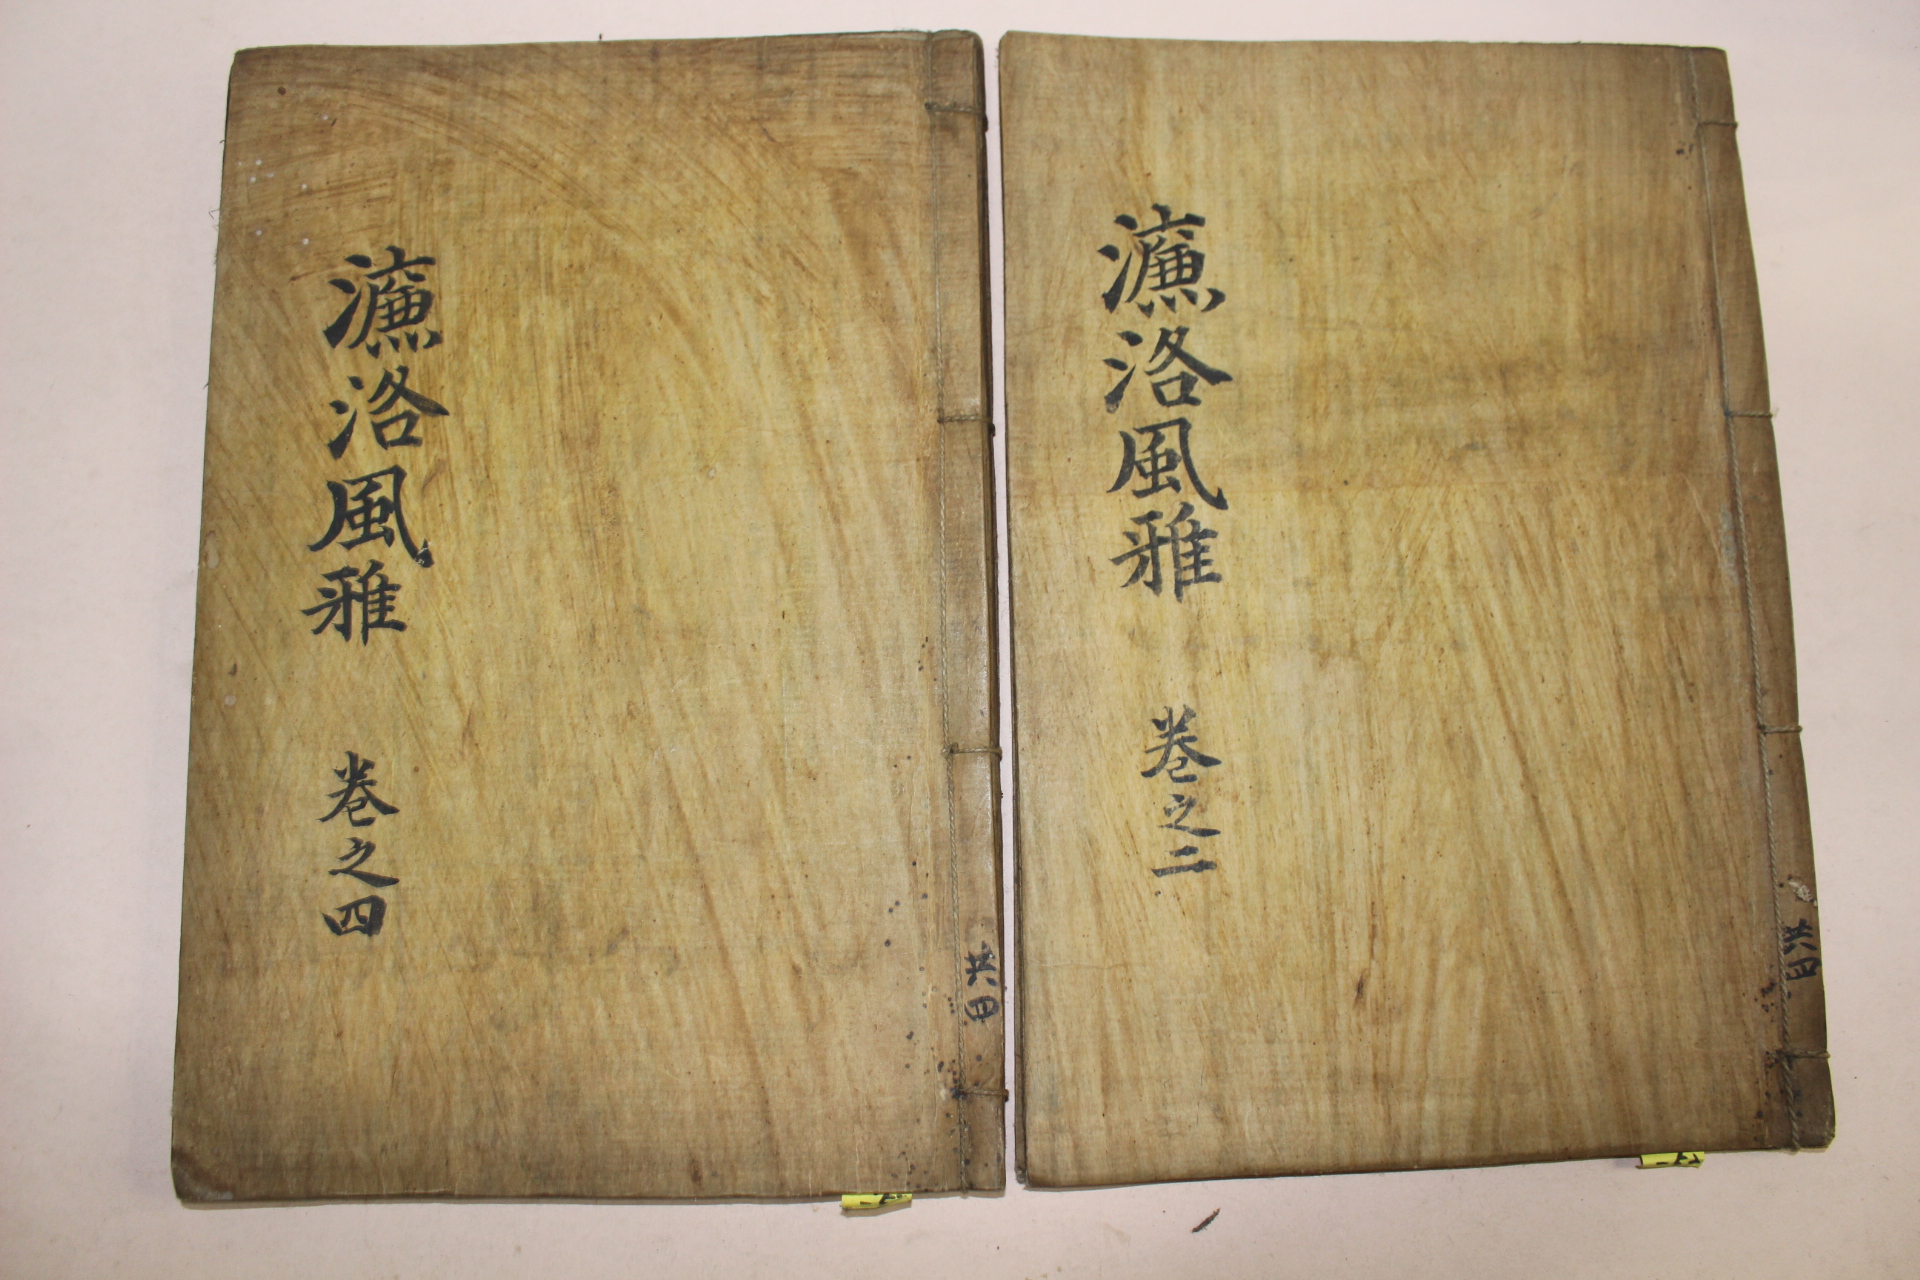 濂洛風雅 卷之二
共四
濂洛風雅 卷之四
共四